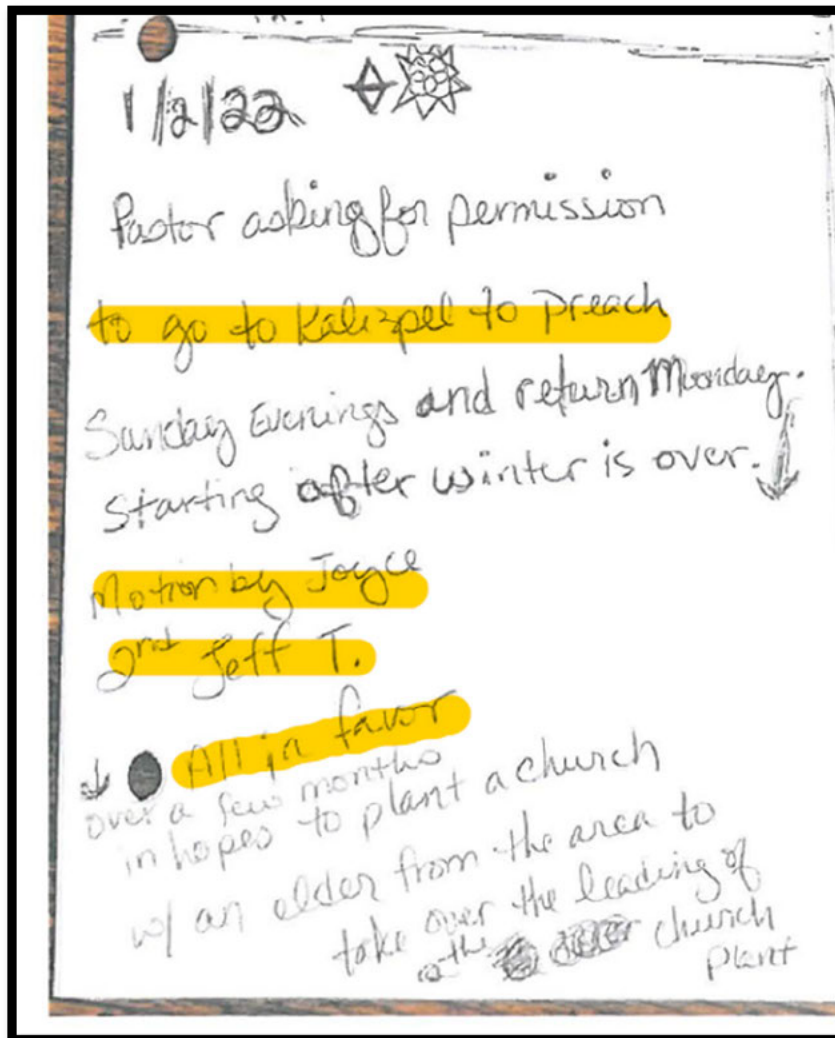 1/2/22
Pastor asking for permission
to go to Kalispel to Preach
Sunday Evenings and return Monday.
Starting after winter is over.
Motion by Joyce
2nd Jeff T.
All in favor
over a few months
in hopes to plant a church
w/ an elder from the area to
take over the leading of
the church
plant